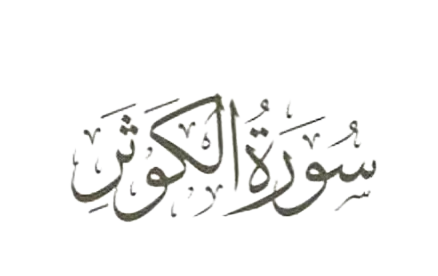 سُورَةُ الكَوْثَرِ